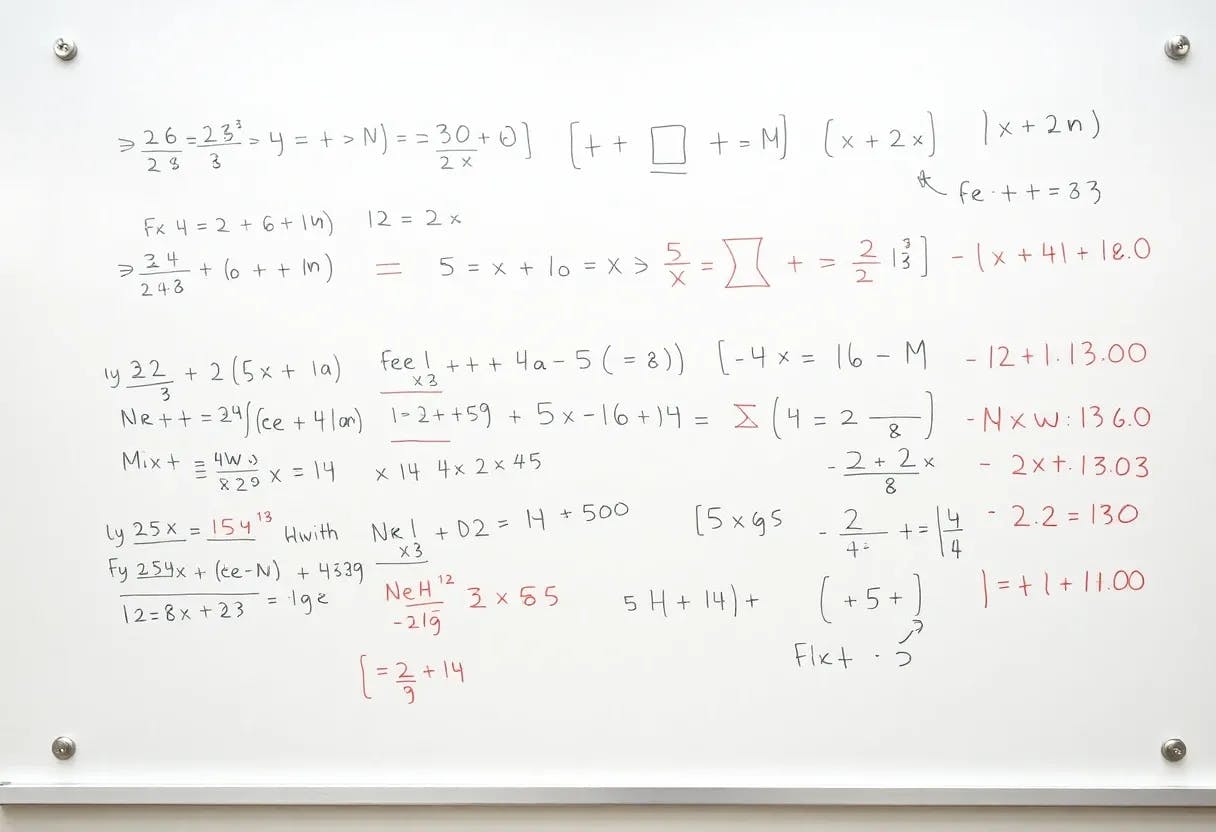 ⇒ 26/28 = 23³/3 > y = + > N) = = 30/2x + 0] [+ + □ + = M] (x + 2x] |x + 2n)
fe · + + = 33
Fx 4 = 2 + 6 + ln) 12 = 2x
⇒ 34/248 + (o + + ln) = 5 = x + 10 = x > 5/x = ∑ + = 2/2 |3/3] - (x + 4) + 18.0
ly 32/3 + 2(5x + 1a) feel/x3 + + + 4a - 5(= 8)) [-4x = 16 - M - 12 + 1.13.00
NR + + = 24∫(ce + 4lan) 1 = 2 + + 59 + 5x - 16 + 14 = Σ (4 = 2 __/8] - N x W: 136.0
Mixt ≡ 4W/829 x = 14 x 14 4x 2 x 45 - 2 + 2x/8 - 2xt. 13.03
ly 25x = 154¹³ Hwith NR1/x3 + 02 = 14 + 500 [5 x g5 - 2/4 + = |4/4 - 2.2 = 130
Fy 254x + (ce - N) + 4339
12 = 8x + 23 = lge NeH¹²/-21g 3 x 55 5 H + 14) + (+ 5 + ] | = + 1 + 11.00
Fixt · 5
[= 2/9 + 14